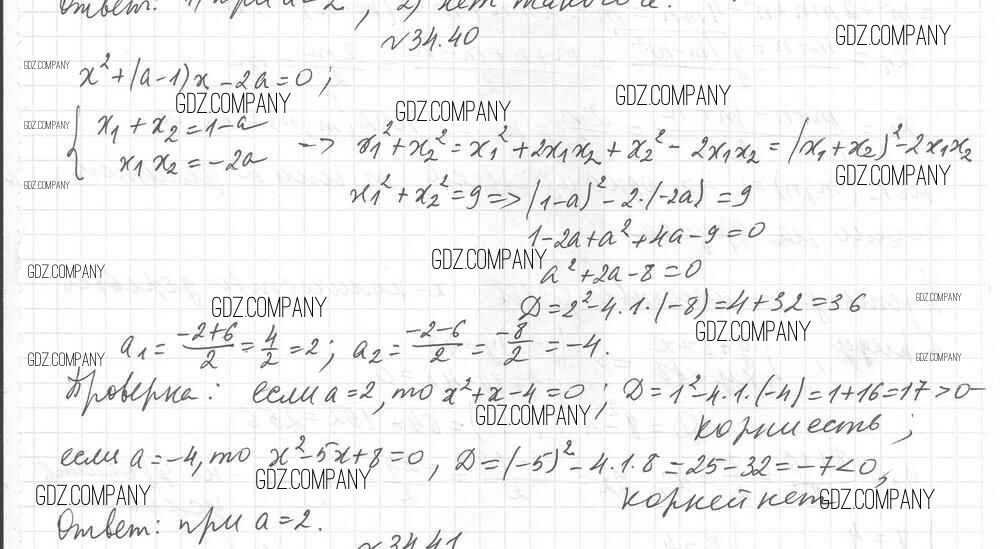 Ответ: 1) при a=2, 2) нет такого a.
№34.40
GDZ.COMPANY
GDZ.COMPANY
x²+(a-1)x-2a=0;
GDZ.COMPANY GDZ.COMPANY GDZ.COMPANY
GDZ.COMPANY
{ x₁+x₂=1-a
x₁x₂=-2a -> x₁²+x₂²=x₁²+2x₁x₂+x₂²-2x₁x₂=(x₁+x₂)²-2x₁x₂
GDZ.COMPANY GDZ.COMPANY
x₁²+x₂²=9=>(1-a)²-2·(-2a)=9
1-2a+a²+4a-9=0
GDZ.COMPANY GDZ.COMPANY
a²+2a-8=0
GDZ.COMPANY GDZ.COMPANY
D=2²-4·1·(-8)=4+32=36
GDZ.COMPANY
a₁=(-2+6)/2=4/2=2; a₂=(-2-6)/2=-8/2=-4.
GDZ.COMPANY GDZ.COMPANY
Проверка: если a=2, то x²+x-4=0; D=1²-4·1·(-4)=1+16=17>0-
GDZ.COMPANY
корни есть;
если a=-4, то x²-5x+8=0, D=(-5)²-4·1·8=25-32=-7<0,
GDZ.COMPANY GDZ.COMPANY
корней нет GDZ.COMPANY
Ответ: при a=2.
№34.41